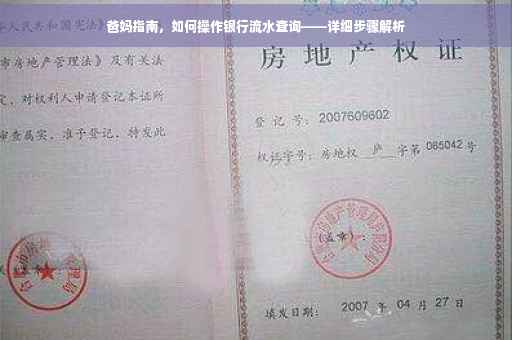 爸妈指南，如何操作银行流水查询——详细步骤解析
华人民共和国宪法》
市房地产管理法》及有关
定，对权利人申请登记本证所
审查属实，准予登记，特发此
房地产权证
登记号：2007609602
权证字号：房地权 庐 字第 085042 号
(盖章)：
填发日期： 2007 年 04 月 27 日